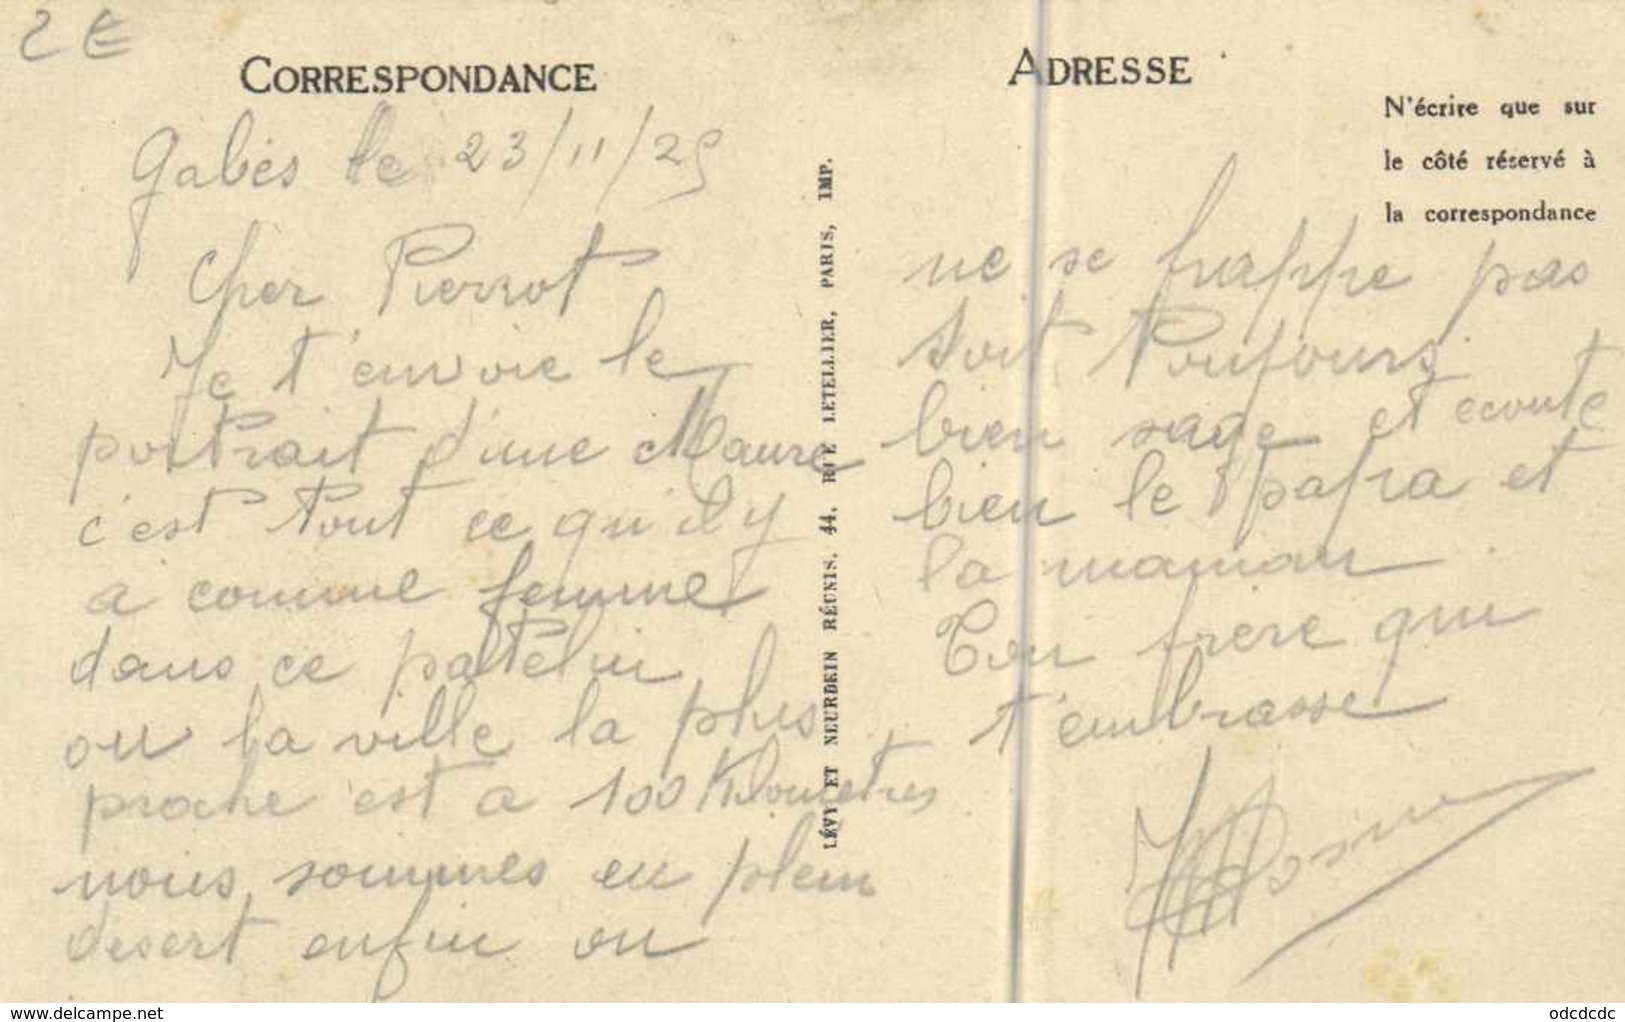 2 E
CORRESPONDANCE
Gabès le 23/11/25
Cher Pierrot
Je t'envoie le
portrait d'une Maure
c'est tout ce qu'il y
a comme femme
dans ce patelin
ou la ville la plus
proche est a 100 Kilometres
nous sommes en plein
desert enfin on
LÉVY ET NEURDEIN RÉUNIS. 44. RUE LETELLIER, PARIS, IMP.
ADRESSE
N'écrire que sur
le côté réservé à
la correspondance
ne se frappe pas
soit toujours
bien sage et ecoute
bien le papa et
la maman
Ton frere qui
t'embrasse
delcampe.net
odcdcdc